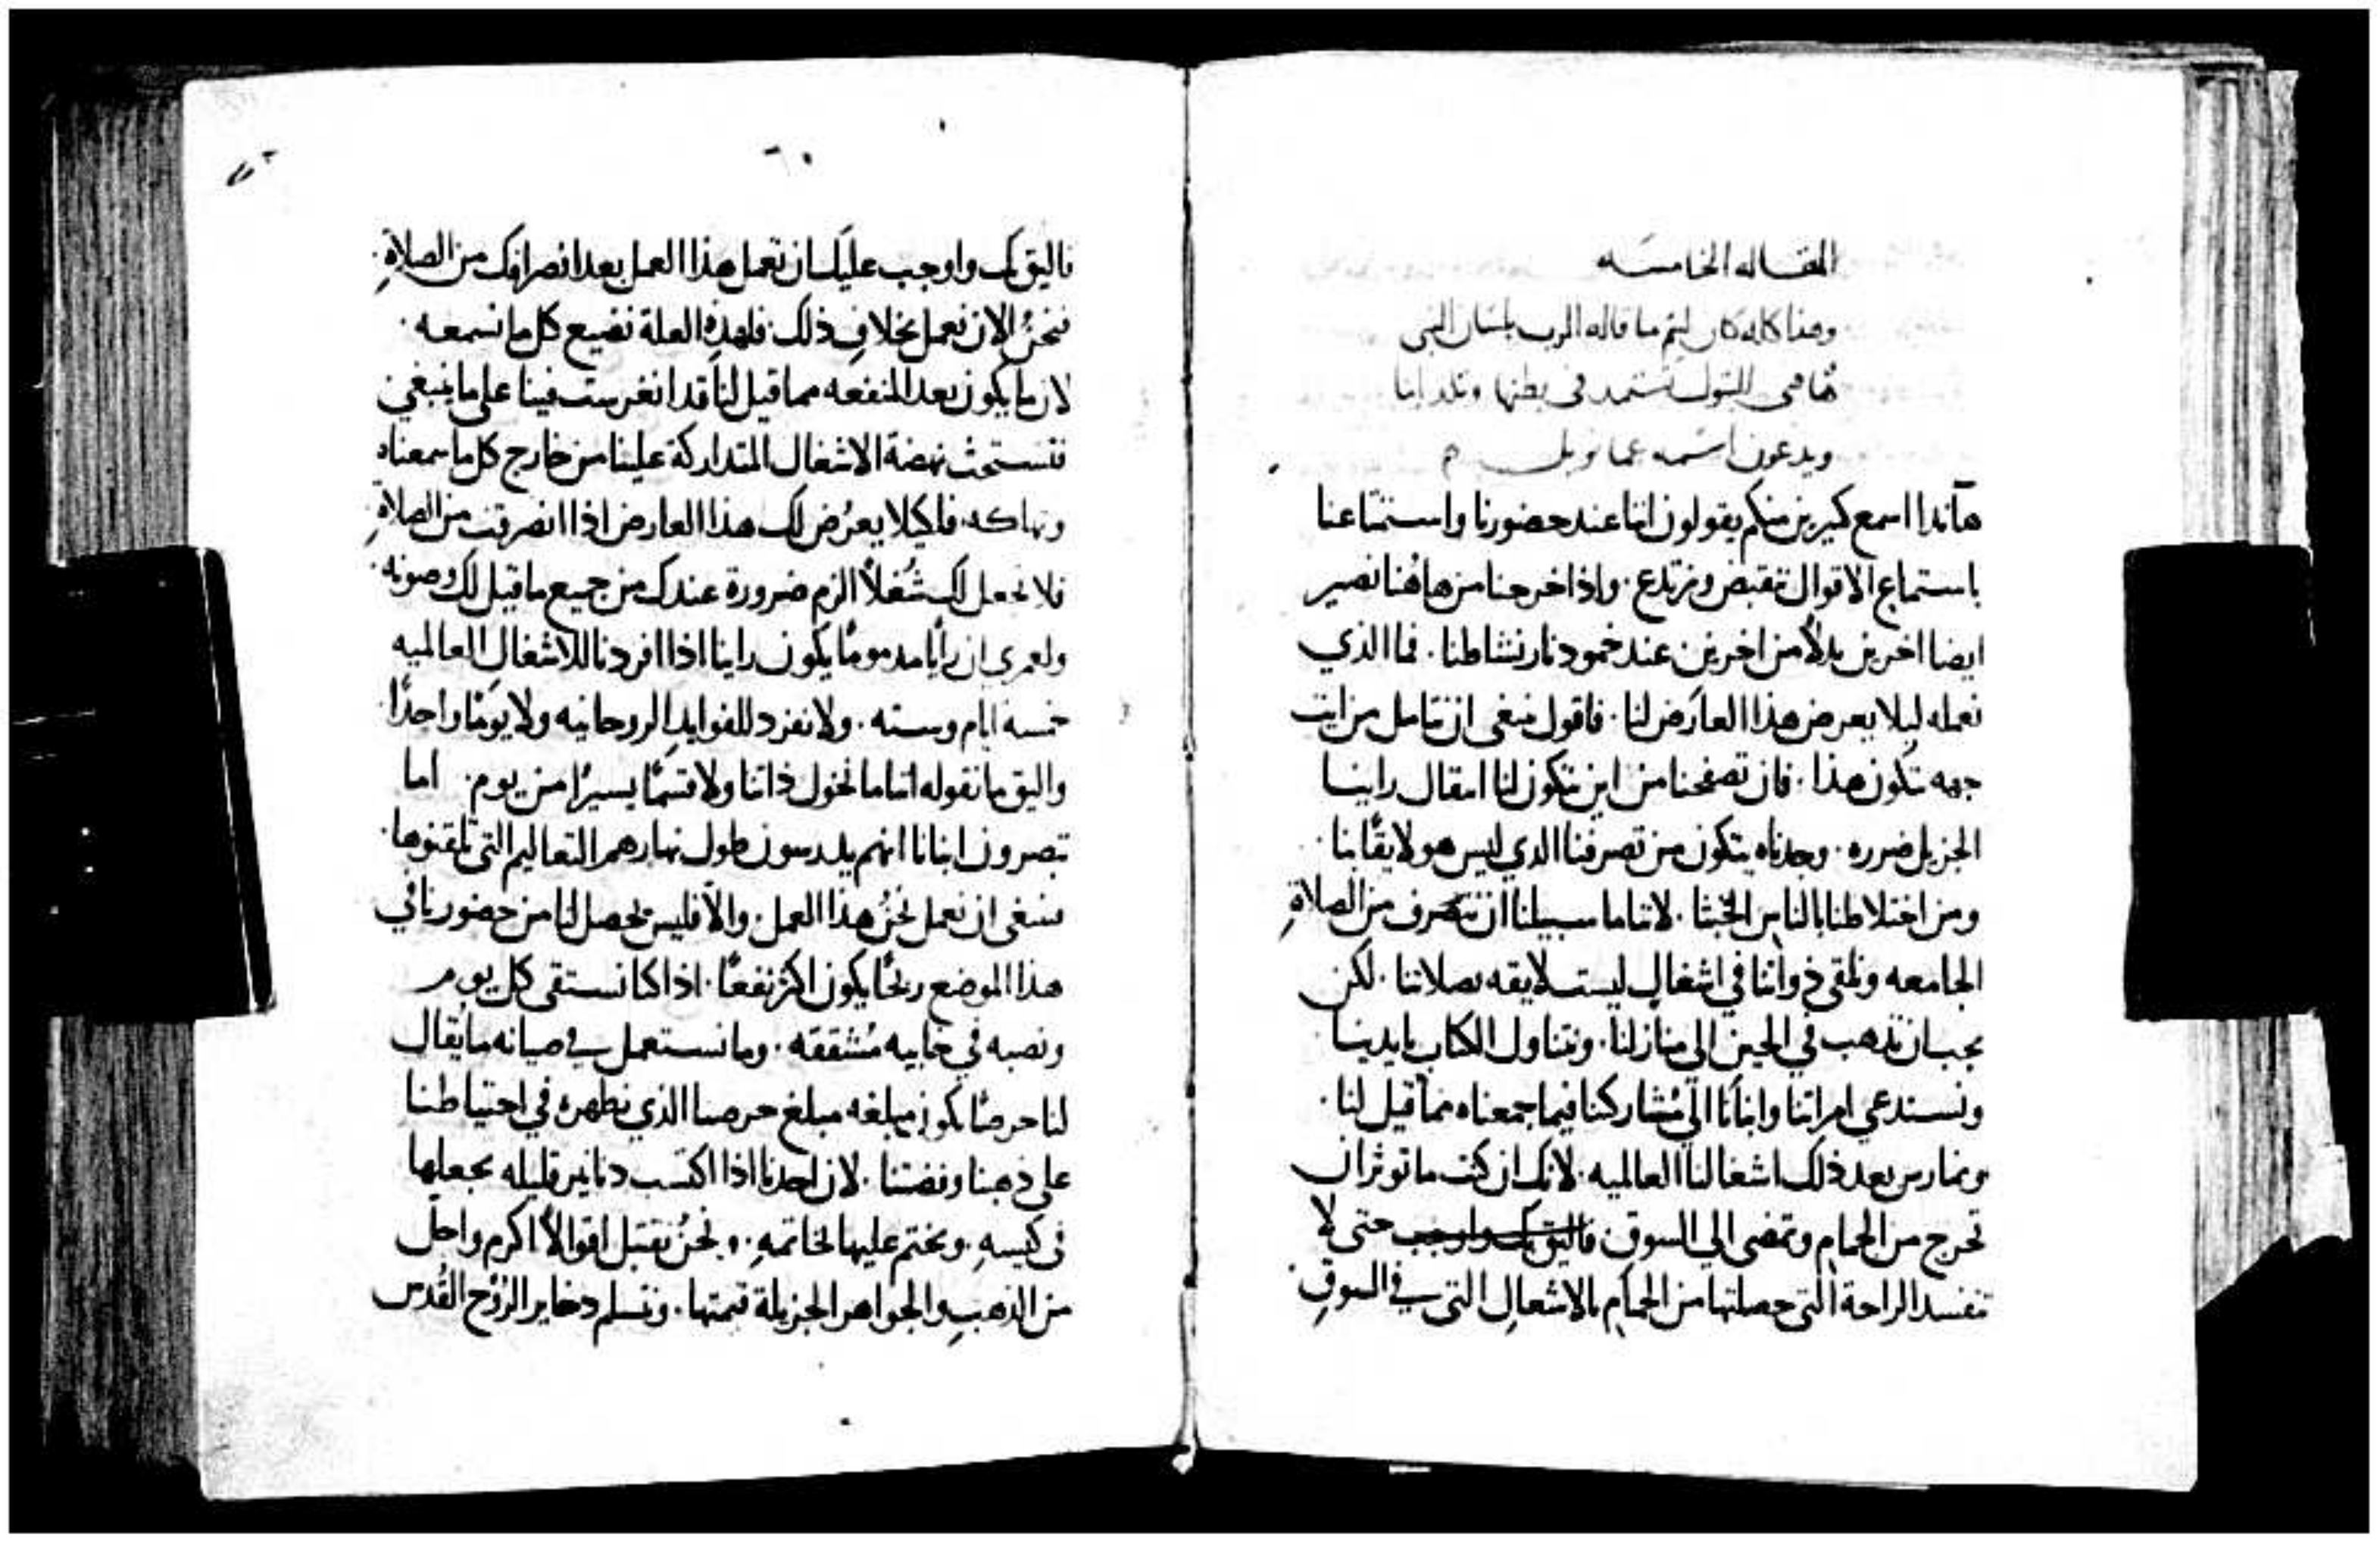 المقاله الخامسه
وهذا كله كان ليتم ما قاله الرب بلسان النبي
هاهي البتول تستمد في بطنها وتلد ابنا
ويدعون اسمه عمانويل
هانذا اسمع كثيرين منكم يقولون اننا عند حضورنا واستمتاعنا
باستماع الاقوال نتقبض ونرتدع . واذا خرجنا من هاهُنا نصير
ايضا اخرين بدلاً من اخرين عند خمود نار نشاطنا . فما الذي
نعمله ليلا يعرض هذا العارض لنا . فاقول ينبغي ان نتامل من ايت
جهه تتكون هذا . فان تصفحنا من اين يتكون لنا انتقال راينا
الجزيل ضرره . وجدناه يتكون من تصرفنا الذي ليس هو لايقًا بنا .
ومن اختلاطنا بالناس الخبثا . لاننا ما سبيلنا ان ننصرف من الصلاةِ
الجامعه ونلقي ذواتنا في اشغالٍ ليست لايقه بصلاتنا . لكن
يجب ان نذهب في الحين الى منازلنا . ونتناول الكتاب بايدينا
ونستدعي امراتنا وابنانا الي مُشاركتنا فيما جمعناه مما قيل لنا .
ونمارس بعد ذلك اشغالنا العالميه . لانك ان كنت ما توثر ان
تخرج من الحمام وتمضي الي السوق فاليق بك واوجب حتى لا
تفسد الراحة التي حصلتها من الحمام بالاشغال التي في السوقِ .
فاليق بك واوجب عليك ان تعمل هذا العمل بعد انصرافك من الصلاةِ .
فنحنُ الان نعمل بخلافِ ذلك . فلهذه العلة نضيع كل ما نسمعه .
لان ما يكون بعد المنفعه مما قيل لنا قد انغرست فينا على ما ينبغي
فتستحث نهضة الاشغال المتداركة علينا من خارج كل ما سمعناه
وتهلكه . فلكيلا يعرُض لك هذا العارض اذا انصرفت من الصلاةِ
فلا تجعل لك شُغلاً الزم ضرورة عندك من جميع ما قيل لك وصونه .
ولعمري ان رأيًا مذمومًا يكون راينا اذا افردنا للاشغالِ العالميه
خمسه ايام وسته . ولا نفرد للفوايدِ الروحانيه ولا يومًا واحدًا .
واليق ما نقوله اننا ما نخول ذاتنا ولا قسمًا يسيرًا من يوم . اما
تبصرون ابنانا انهم يدرسون طول نهارهم التعاليم التي تلقنوها .
ينبغي ان نعمل نحنُ هذا العمل . والّا فليس يحصل لنا من حضورنا في
هذا الموضع ربحًا يكون اكثر نفعًا . اذا كنا نستقي كل يوم
ونصبه في خابيه مُشققه . وما نستعمل في صيانه ما يُقال
لنا حرصًا يكون مبلغه مبلغ حرصنا الذي نظهرهُ في احتياطنا
على ذهبنا وفضتنا . لان احدنا اذا اكتسب دنانير قليله يجعلها
في كيسهِ . ويختم عليها بخاتمهِ . ونحنُ نقتبل اقوالاً اكرم واجلّ
من الذهبِ والجواهر الجزيلة قيمتها . ونتسلم ذخاير الرُوْح القُدس